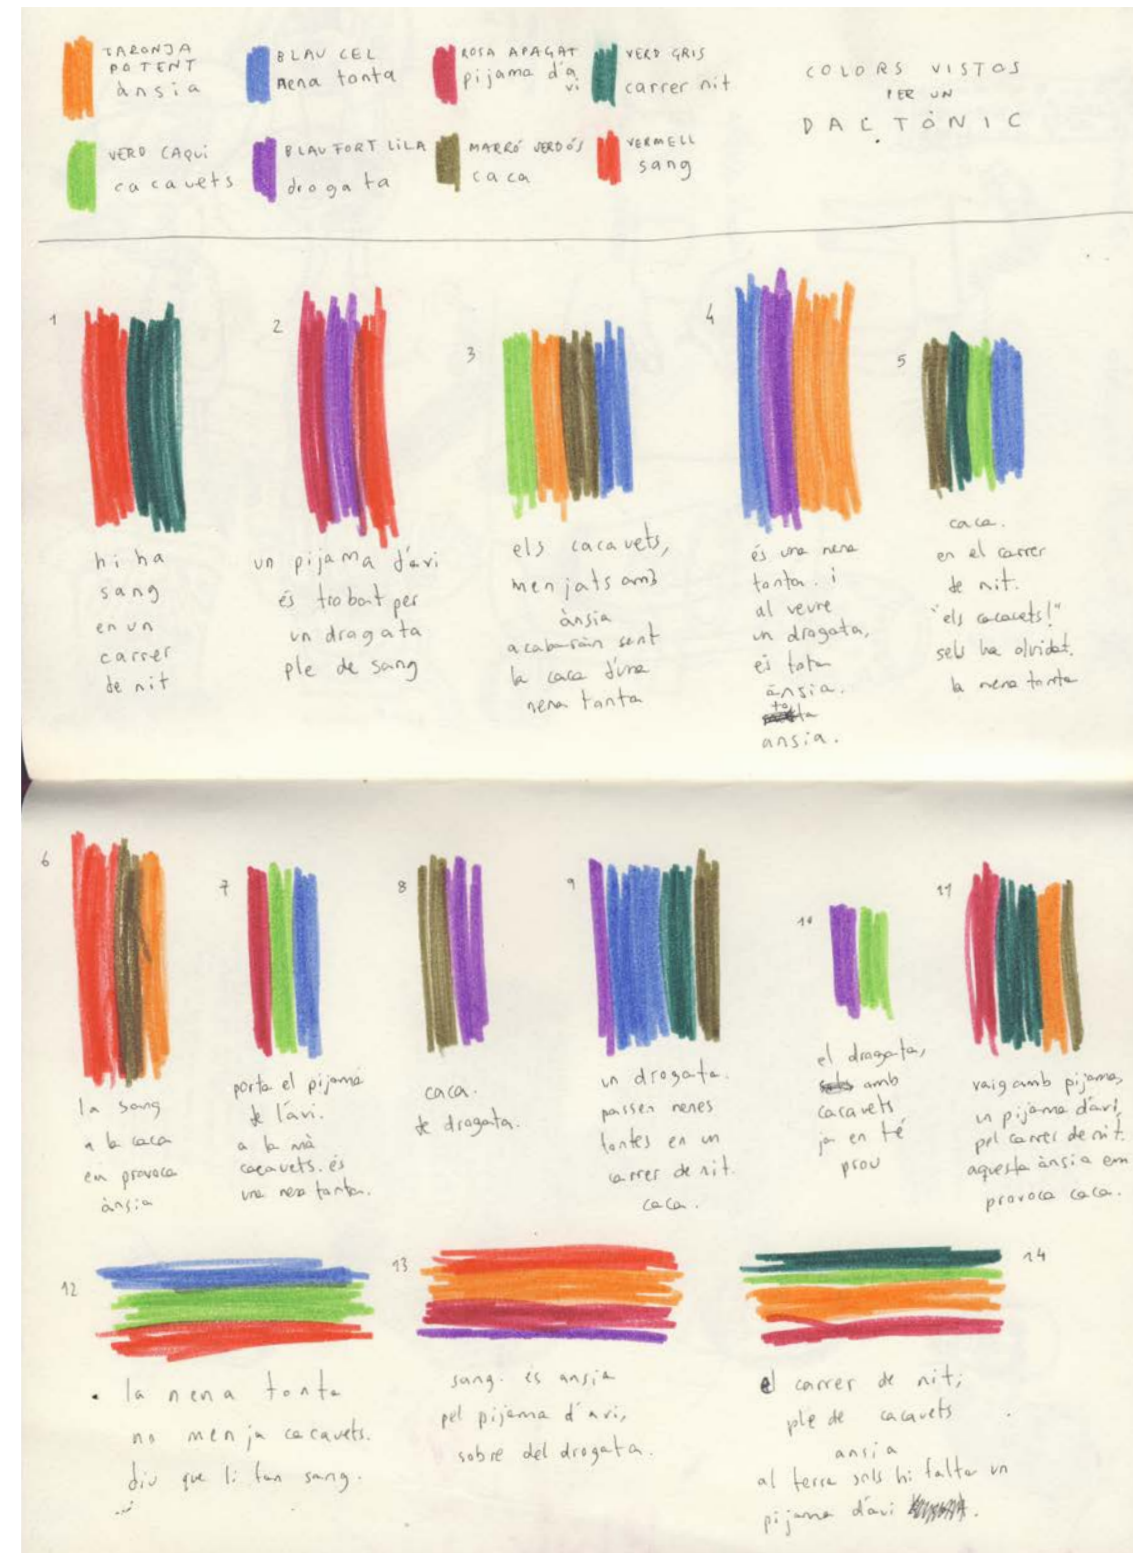 TARONJA
POTENT
ànsia
BLAU CEL
nena tonta
ROSA APAGAT
pijama d'a
vi
VERD GRIS
carrer nit
COLORS VISTOS
PER UN
DALTÒNIC
VERD CAQUI
cacauets
BLAU FORT LILA
drogata
MARRÓ VERDÓS
caca
VERMELL
sang
1
hi ha
sang
en un
carrer
de nit
2
un pijama d'avi
és trobat per
un drogata
ple de sang
3
els cacauets,
menjats amb
ànsia
acabaràn sent
la caca d'una
nena tonta
4
és una nena
tonta. i
al veure
un drogata,
és tota
ànsia.
tota
ansia.
5
caca.
en el carrer
de nit.
"els cacauets!"
sels ha olvidat.
la nena tonta
6
la sang
a la caca
em provoca
ànsia
7
porta el pijama
de l'avi.
a la mà
cacauets. és
una nena tonta.
8
caca.
de drogata.
9
un drogata.
passen nenes
tontes en un
carrer de nit.
caca.
10
el drogata,
amb
cacauets
ja en té
prou
11
vaig amb pijama,
un pijama d'avi,
pel carrer de nit.
aquesta ànsia em
provoca caca.
12
la nena tonta
no menja cacauets.
diu que li fan sang.
13
sang. és ansia
pel pijama d'avi,
sobre del drogata.
14
el carrer de nit;
ple de cacauets
ansia
al terra sols hi falta un
pijama d'avi